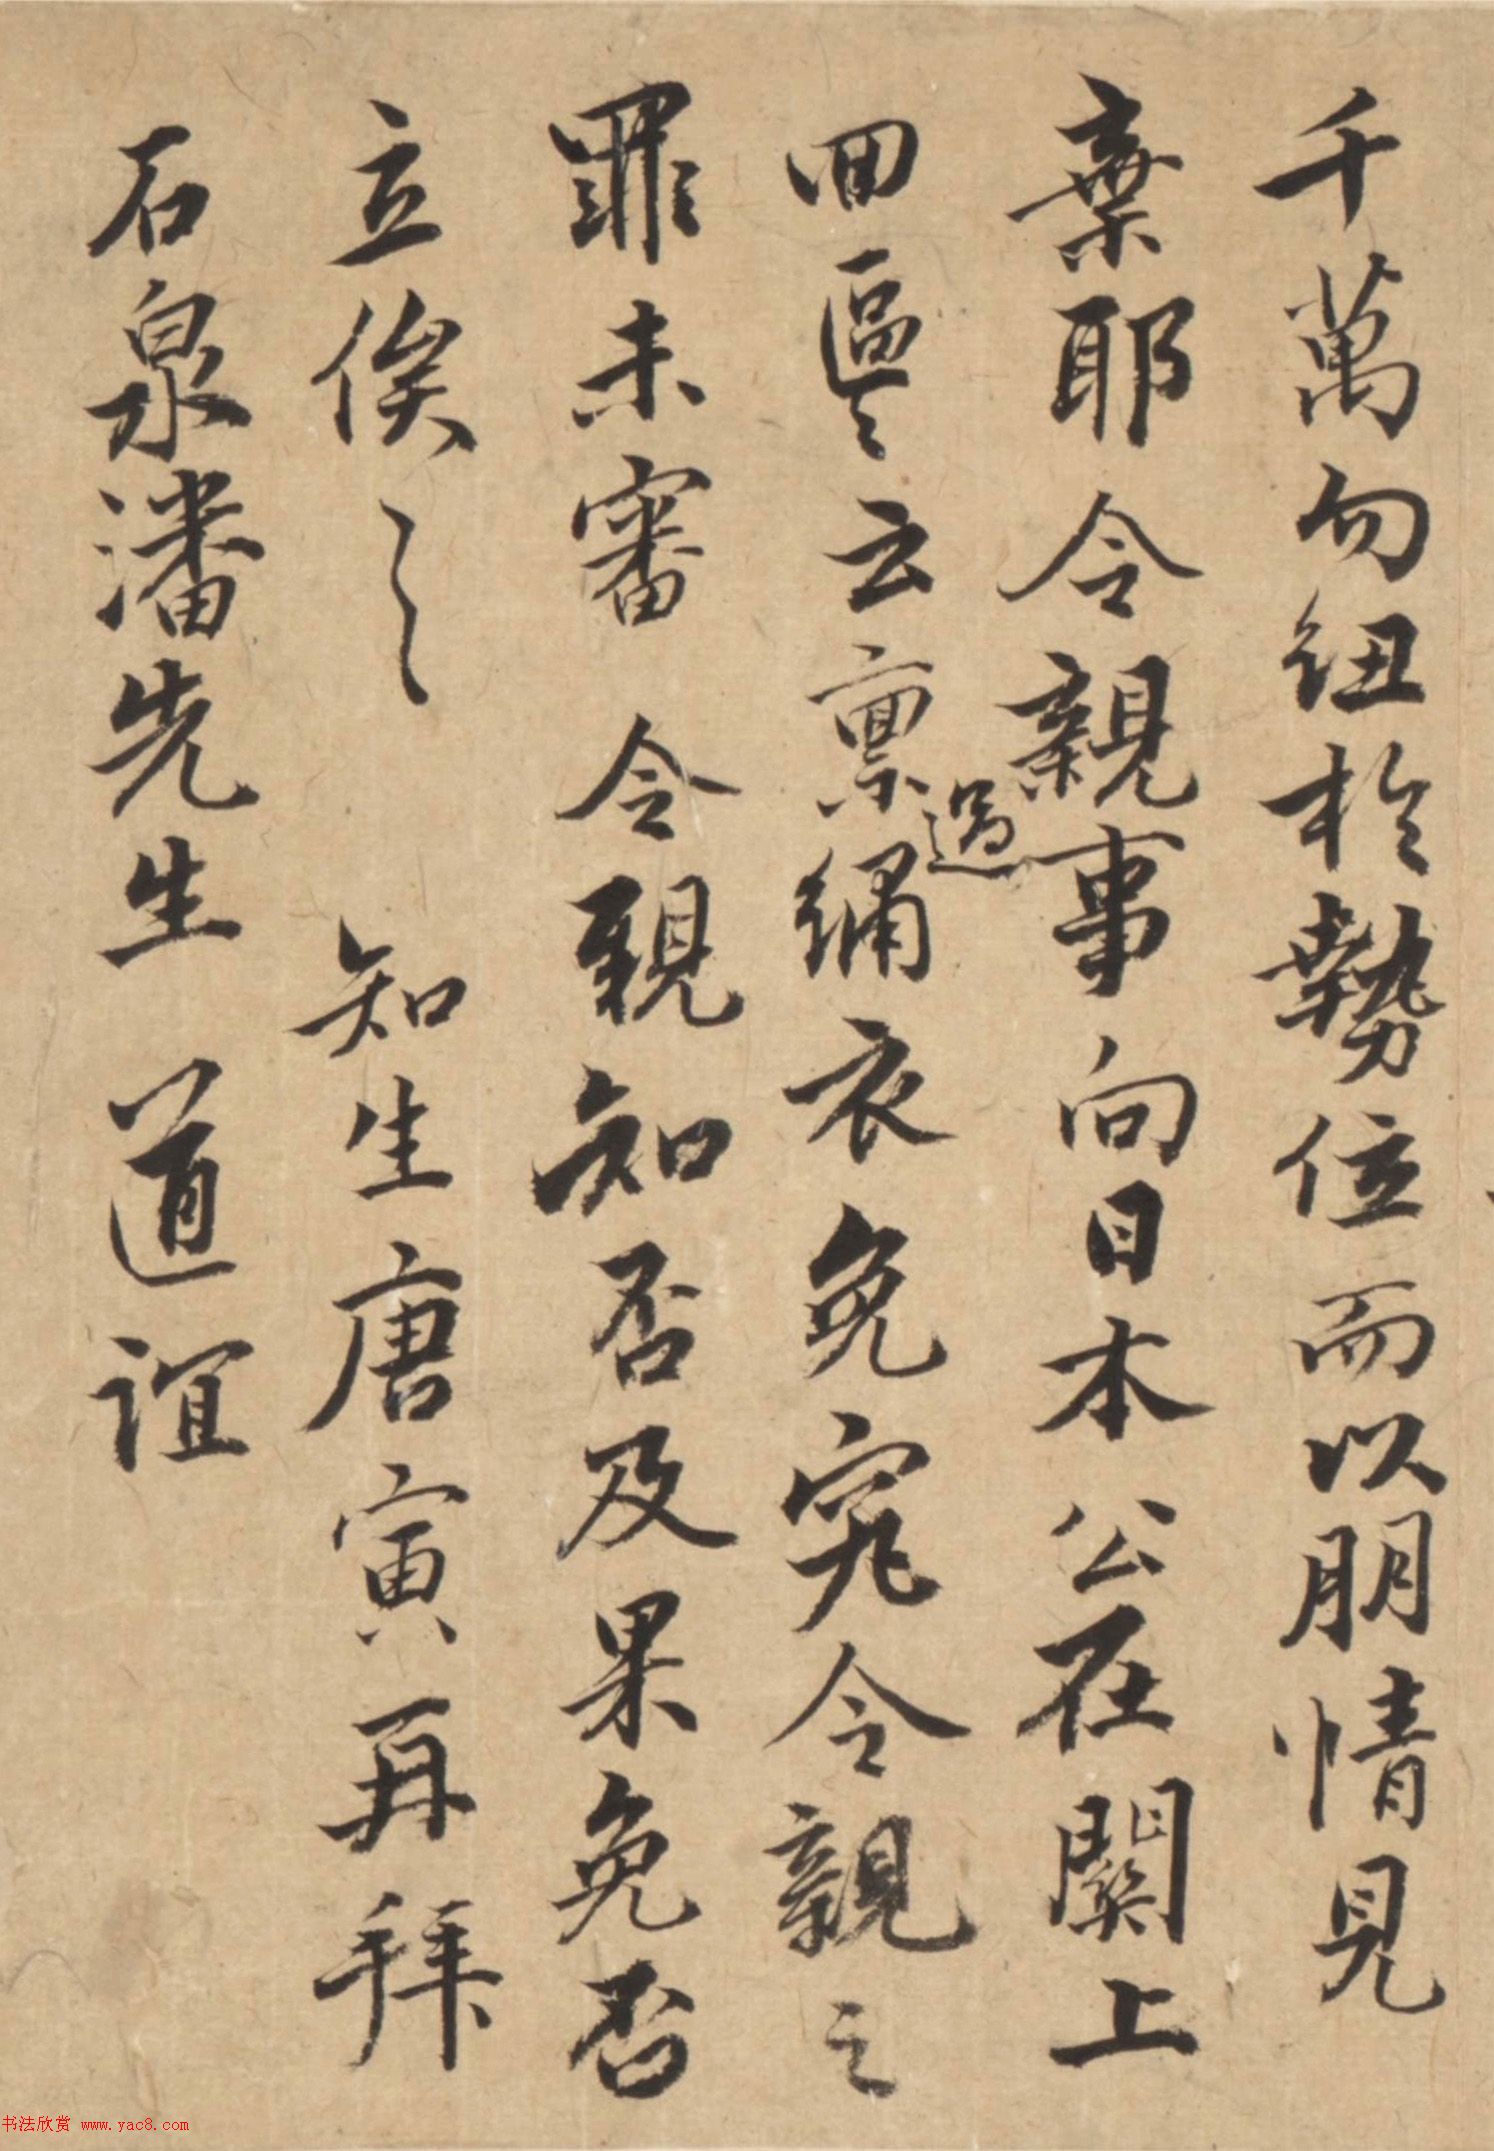 千萬勿紐於勢位而以朋情見
棄耶令親事向日本公在闕上
回區〻云禀過繡衣免究令親之
罪未審令親知否及果免否
立俟〻〻知生唐寅再拜
石泉潘先生道誼
书法欣赏 www.yac8.com